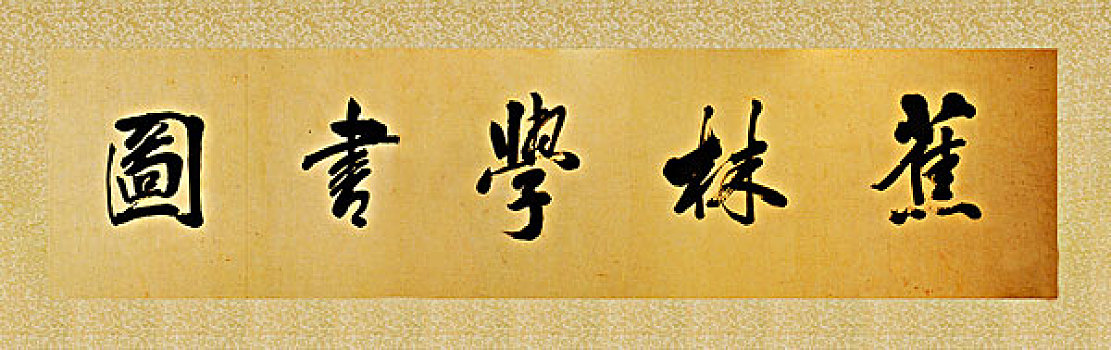 蕉林學書圖